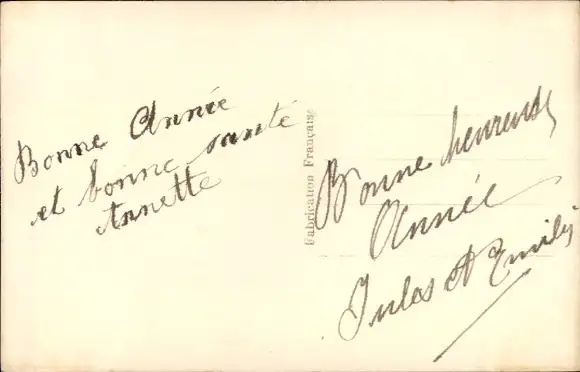 Bonne Année
et bonne santé
Annette
Fabrication Française
Bonne heureuse
Année
Jules et Emily